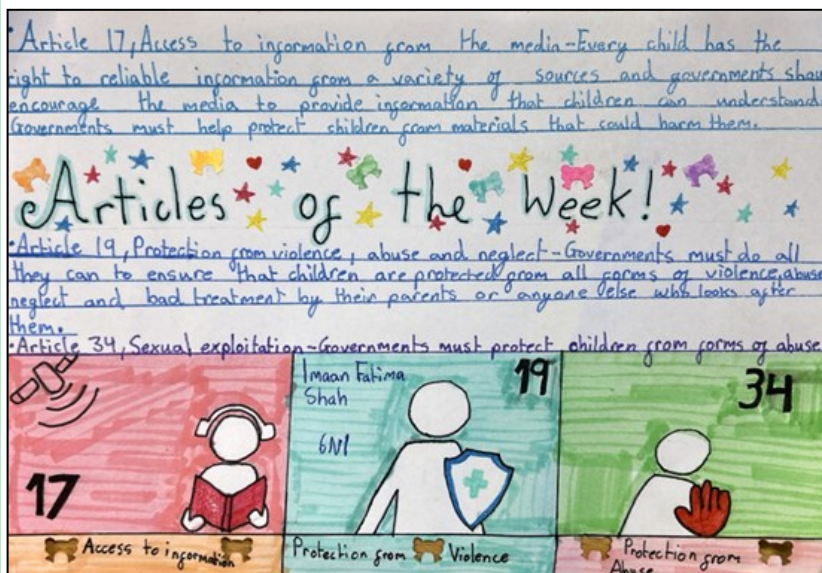 • Article 17, Access to information from the media – Every child has the
right to reliable information from a variety of sources and governments shou
encourage the media to provide information that children can understand.
Governments must help protect children from materials that could harm them.
Articles of the Week!
• Article 19, Protection from violence, abuse and neglect – Governments must do all
they can to ensure that children are protected from all forms of violence, abuse
neglect and bad treatment by their parents or anyone else who looks after
them.
• Article 34, Sexual exploitation – Governments must protect children from forms of abuse
17
Access to information
Imaan Fatima
Shah
6N1
19
Protection from Violence
34
Protection from
Abuse